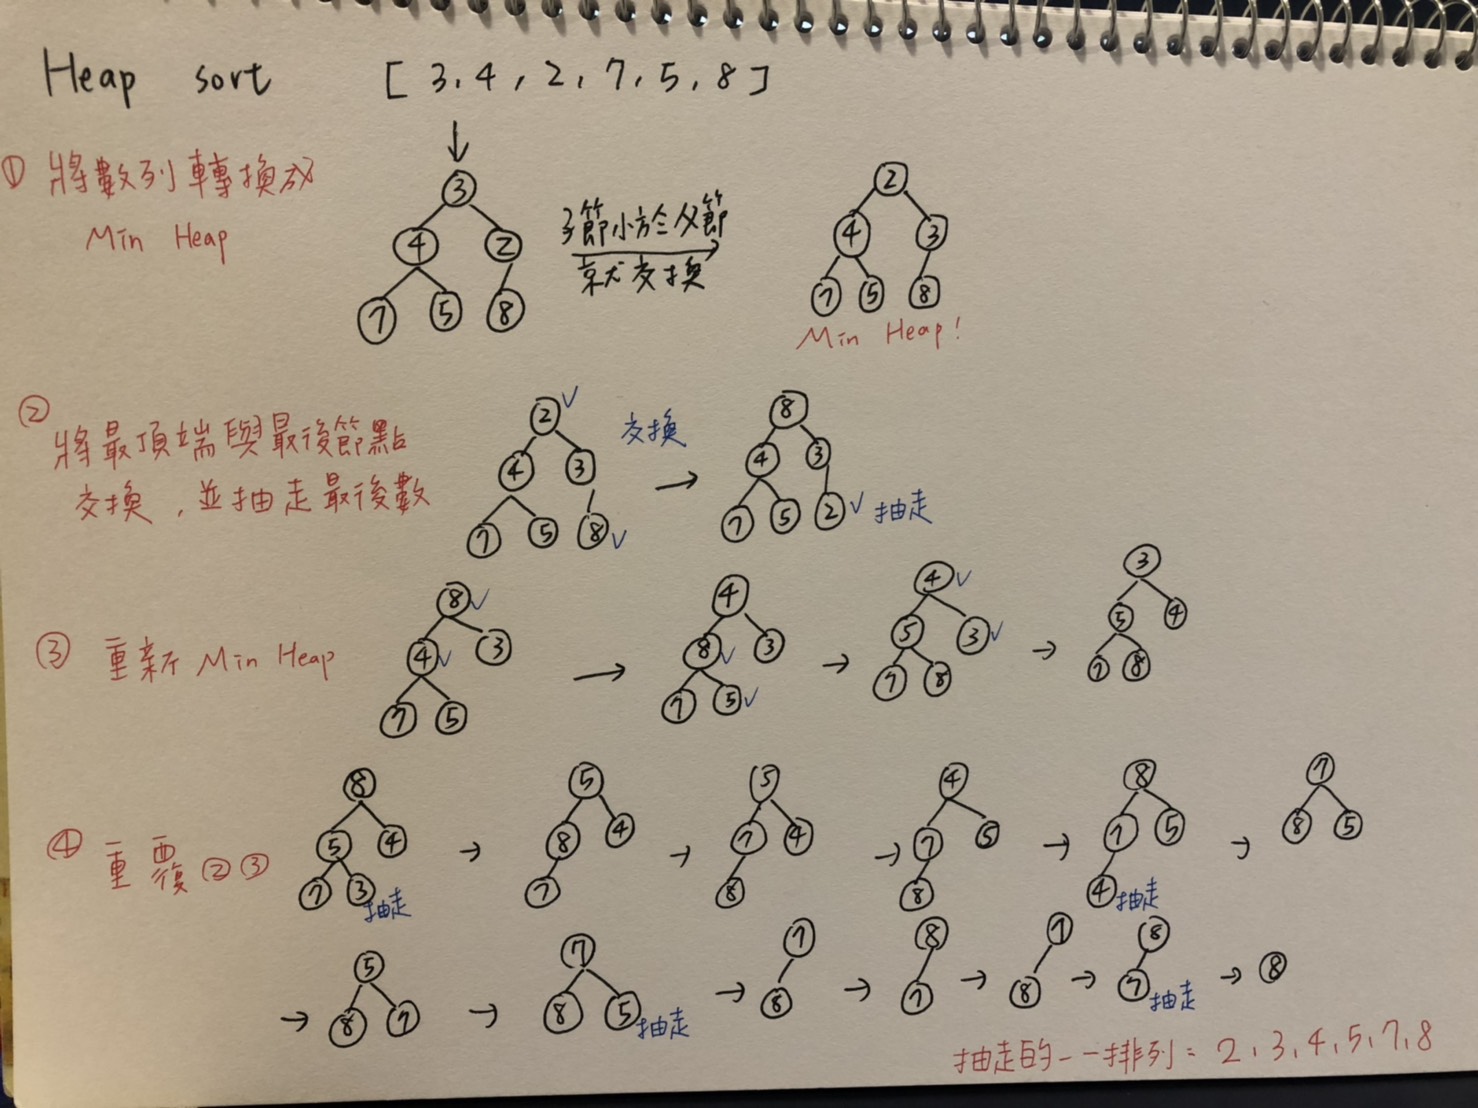 Heap sort [3,4,2,7,5,8]
① 將數列轉換成
Min Heap
3
4 2
7 5 8
子節小於父節
就交換
2
4 3
7 5 8
Min Heap!
② 將最頂端與最後節點
交換,並抽走最後數
2
4 3
7 5 8
交換
8
4 3
7 5 2 抽走
③ 重新 Min Heap
8
4 3
7 5
4
8 3
7 5
4
5 3
7 8
3
5 4
7 8
④ 重覆②③
8
5 4
7 3 抽走
5
8 4
7
5
7 4
8
4
7 5
8
8
7 5
4 抽走
7
8 5
5
8 7
7
8 5 抽走
7
8
8
7
7
8
8
7 抽走
8
抽走的一一排列 = 2,3,4,5,7,8